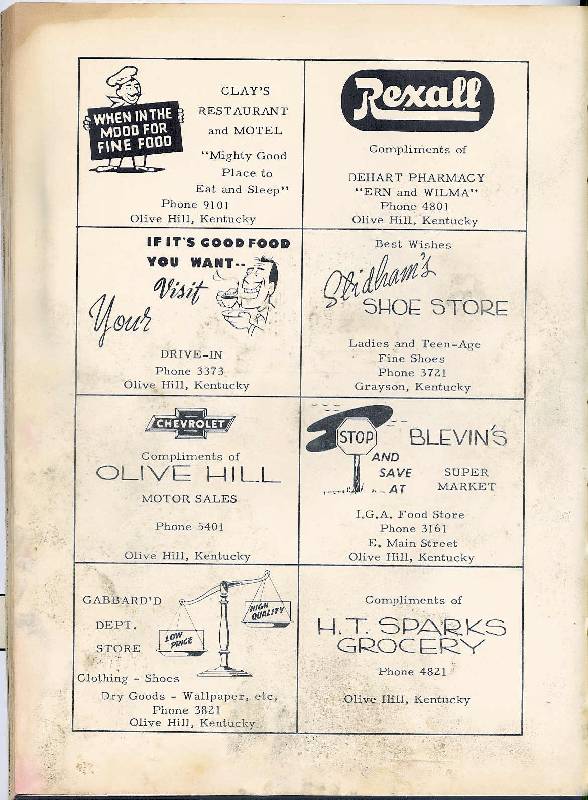 WHEN IN THE
MOOD FOR
FINE FOOD
CLAY'S
RESTAURANT
and MOTEL
"Mighty Good
Place to
Eat and Sleep"
Phone 9101
Olive Hill, Kentucky
Rexall
Compliments of
DEHART PHARMACY
"ERN and WILMA"
Phone 4801
Olive Hill, Kentucky
IF IT'S GOOD FOOD
YOU WANT--
Visit
Your
DRIVE-IN
Phone 3373
Olive Hill, Kentucky
Best Wishes
Stidham's
SHOE STORE
Ladies and Teen-Age
Fine Shoes
Phone 3721
Grayson, Kentucky
CHEVROLET
Compliments of
OLIVE HILL
MOTOR SALES
Phone 5401
Olive Hill, Kentucky
STOP
AND
SAVE
AT
BLEVIN'S
SUPER
MARKET
I.G.A. Food Store
Phone 3161
E. Main Street
Olive Hill, Kentucky
GABBARD'D
DEPT.
STORE
LOW
PRICE
HIGH
QUALITY
Clothing - Shoes
Dry Goods - Wallpaper, etc,
Phone 3821
Olive Hill, Kentucky
Compliments of
H.T. SPARKS
GROCERY
Phone 4821
Olive Hill, Kentucky